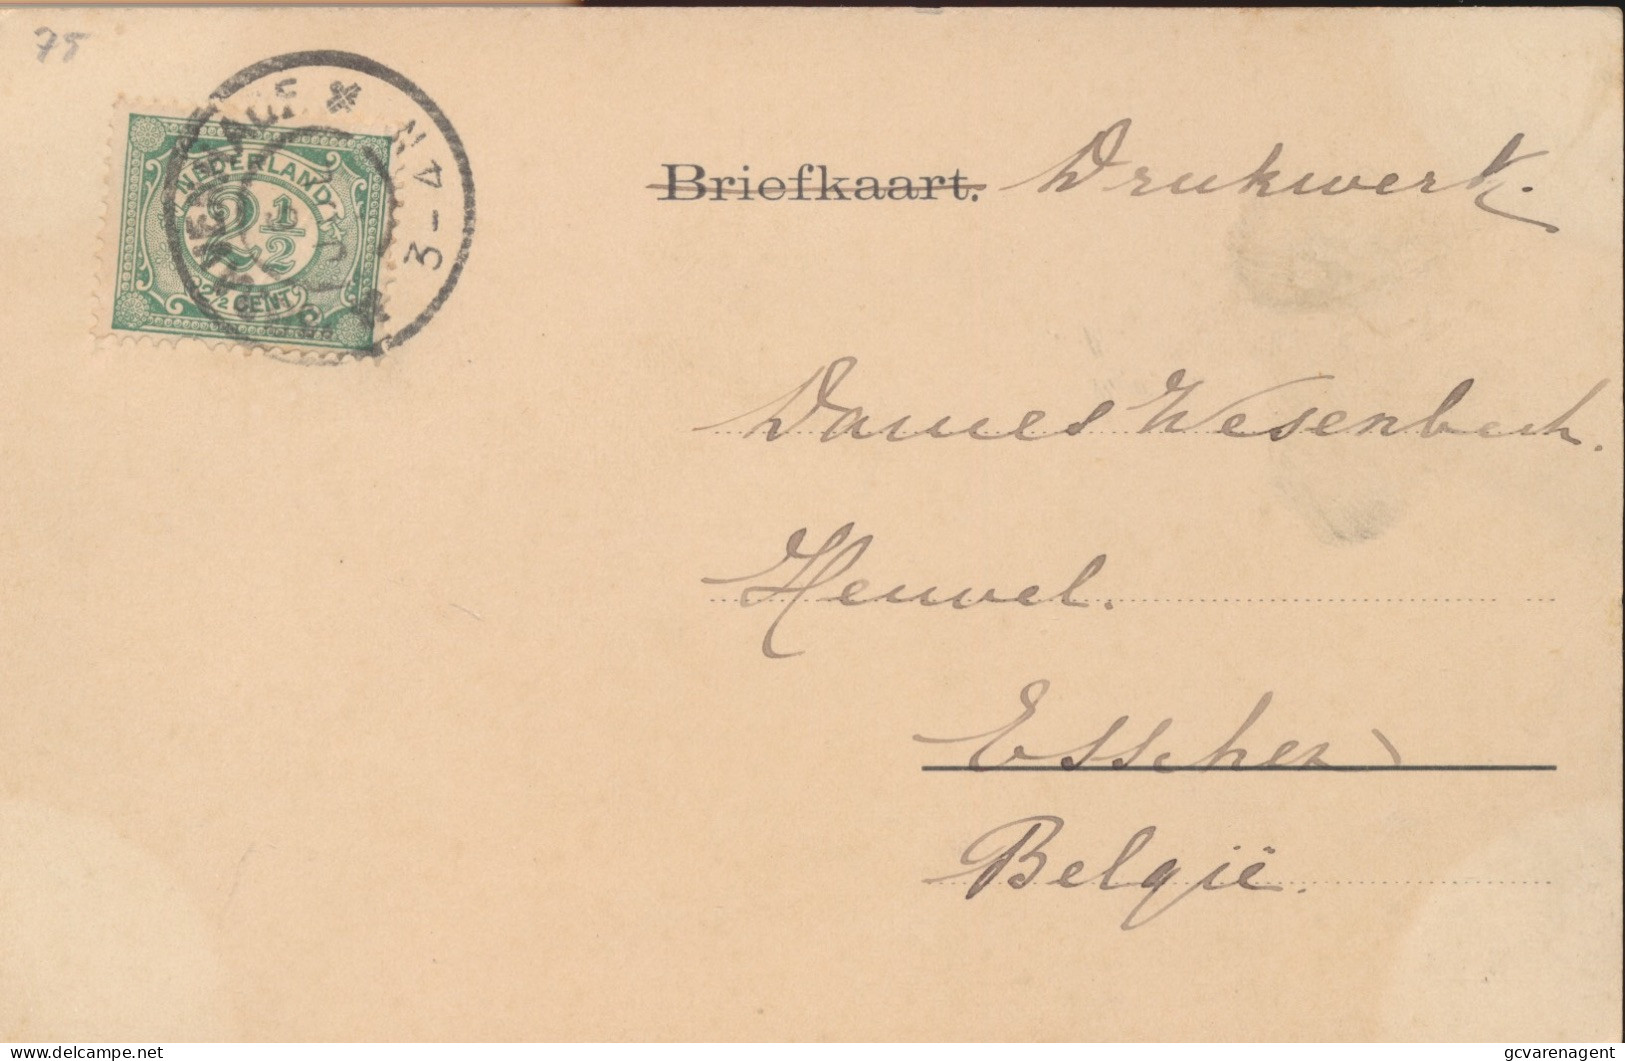 75
NEDERLAND
2½
2½ CENT
3-4 N
Briefkaart. Drukwerk.
Dames Wesenbeek.
Heuvel.
Esschen
België.
delcampe.net
gcvarenagent